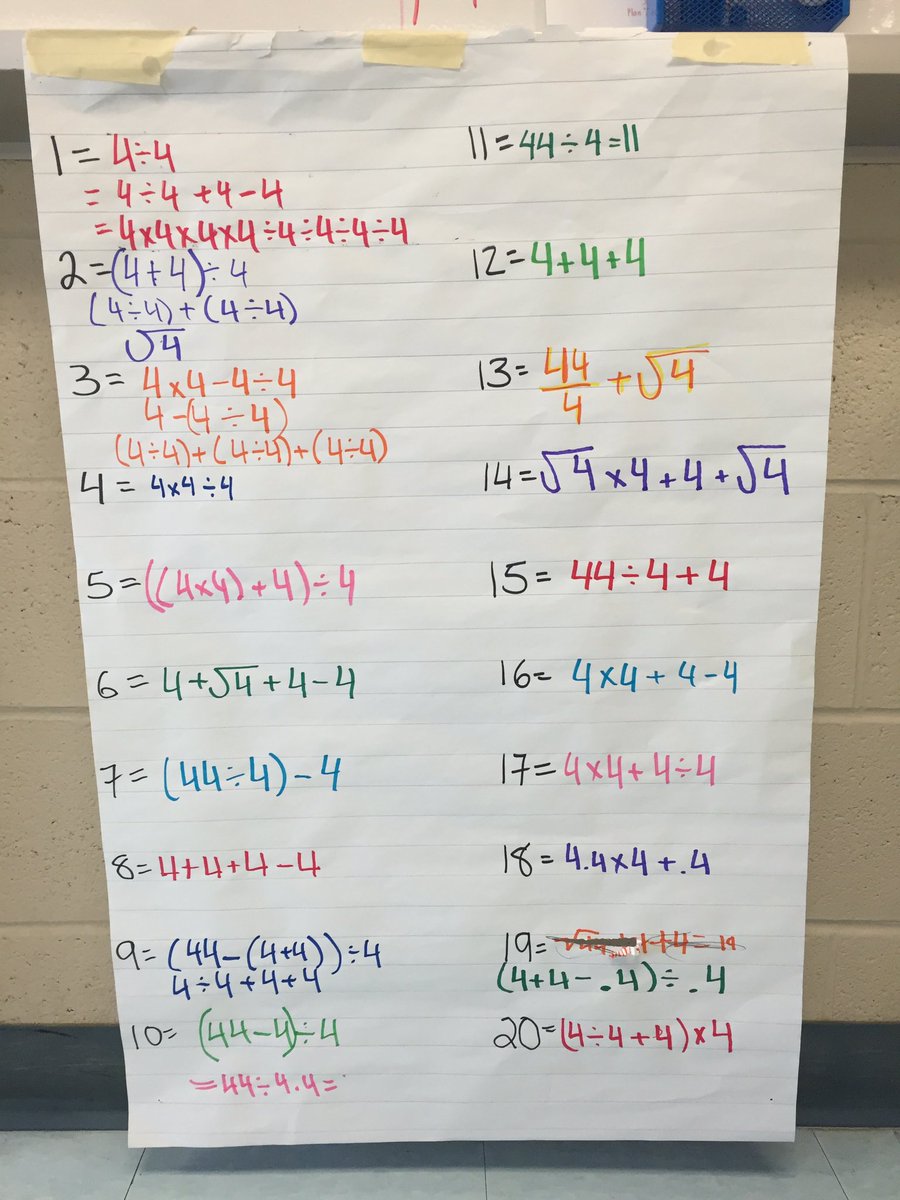 1 = 4÷4
= 4÷4 +4-4
= 4x4x4x4÷4÷4÷4÷4
2=(4+4)÷4
(4÷4)+(4÷4)
√4
3= 4x4-4÷4
4-(4÷4)
(4÷4)+(4÷4)+(4÷4)
4 = 4x4÷4
5=((4x4)+4)÷4
6= 4+√4+4-4
7= (44÷4)-4
8=4+4+4-4
9=(44-(4+4))÷4
4÷4+4+4
10= (44-4)÷4
=44÷4.4=
11=44÷4=11
12=4+4+4
13= 44/4 +√4
14=√4x4+4+√4
15= 44÷4+4
16= 4x4+4-4
17=4x4+4÷4
18=4.4x4+.4
19= 1+4= 19
(4+4-.4)÷.4
20=(4÷4+4)x4